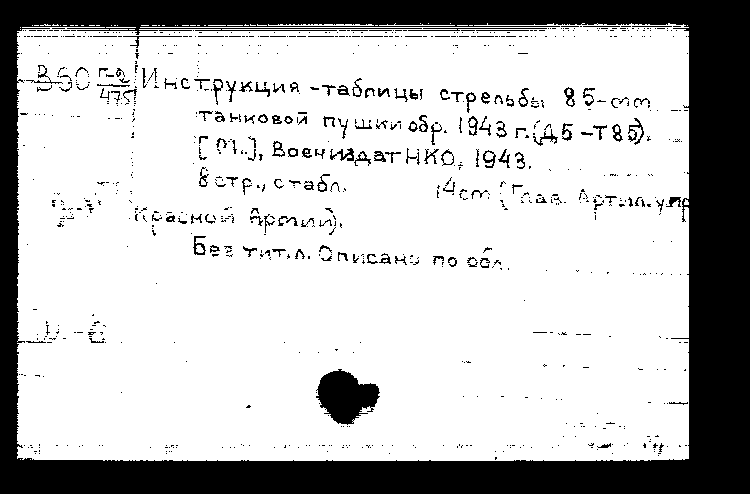 В60 Г-2/475 Инструкция-таблицы стрельбы 85-mm
танковой пушки обр. 1943 г. (Д5-Т85).
[М.], Воениздат НКО, 1943.
8 стр., с табл. 14cm (Глав. Артил. упр
Красной Армии).
Без тит. л. Описано по обл.